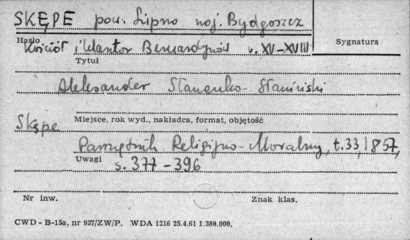 SKĘPE pow. Lipno woj. Bydgoszcz
Hasło
Kościół i klasztor Bernardynów w. XV-XVIII
Sygnatura
Tytuł
Aleksander
Skępe
Miejsce, rok wyd., nakładca, format, objętość
Pamiętnik Religijno-Moralny, t.33, 1857,
Uwagi
s. 377-396
Nr inw.
Znak klas.
CWD - B-15a, nr 937/ZW/P. WDA 1216 25.4.61 1.380.000.